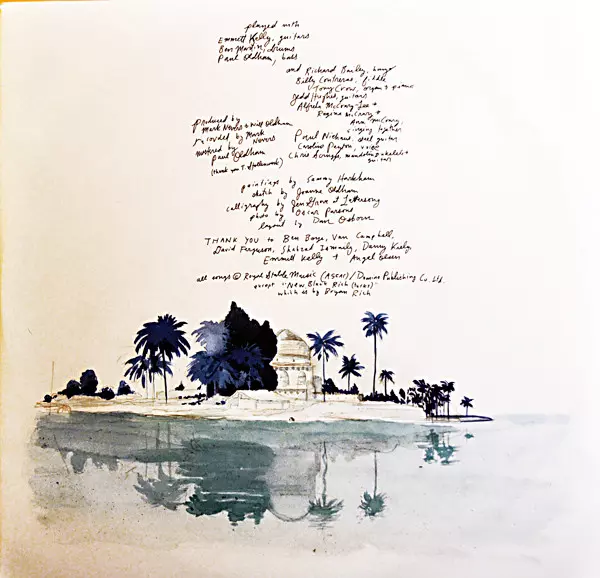 played with
Emmett Kelly, guitars
Ben Martin, drums
Paul Oldham, bass
and Richard Bailey, banjo
Billy Contreras, fiddle
Tony Crow, organ + piano
Jedd Hughes, guitars
Alfreda McCrary-Lee +
Regina McCrary +
Ann McCrary,
singing together
Paul Niehaus, steel guitar
Caroline Peyton, voice
Chris Scruggs, mandolin, ukelele +
guitars
produced by
Mark Nevers + Will Oldham
recorded by Mark
Nevers
mastered by
Paul Oldham
(thank you T.
paintings by Sammy Harkham
sketch by Joanne Oldham
calligraphy by Jen
photo by Oscar Parsons
layout by Dan Osborn
THANK YOU to Ben Boye, Van Campbell,
David Ferguson, Shahzad Ismaily, Danny Kiely
Emmett Kelly + Angel Olsen
all songs © Royal Stable Music (ASCAP)/Domino Publishing Co. Ltd.
except "New Black Rich (Tusks)"
which is by Bryan Rich